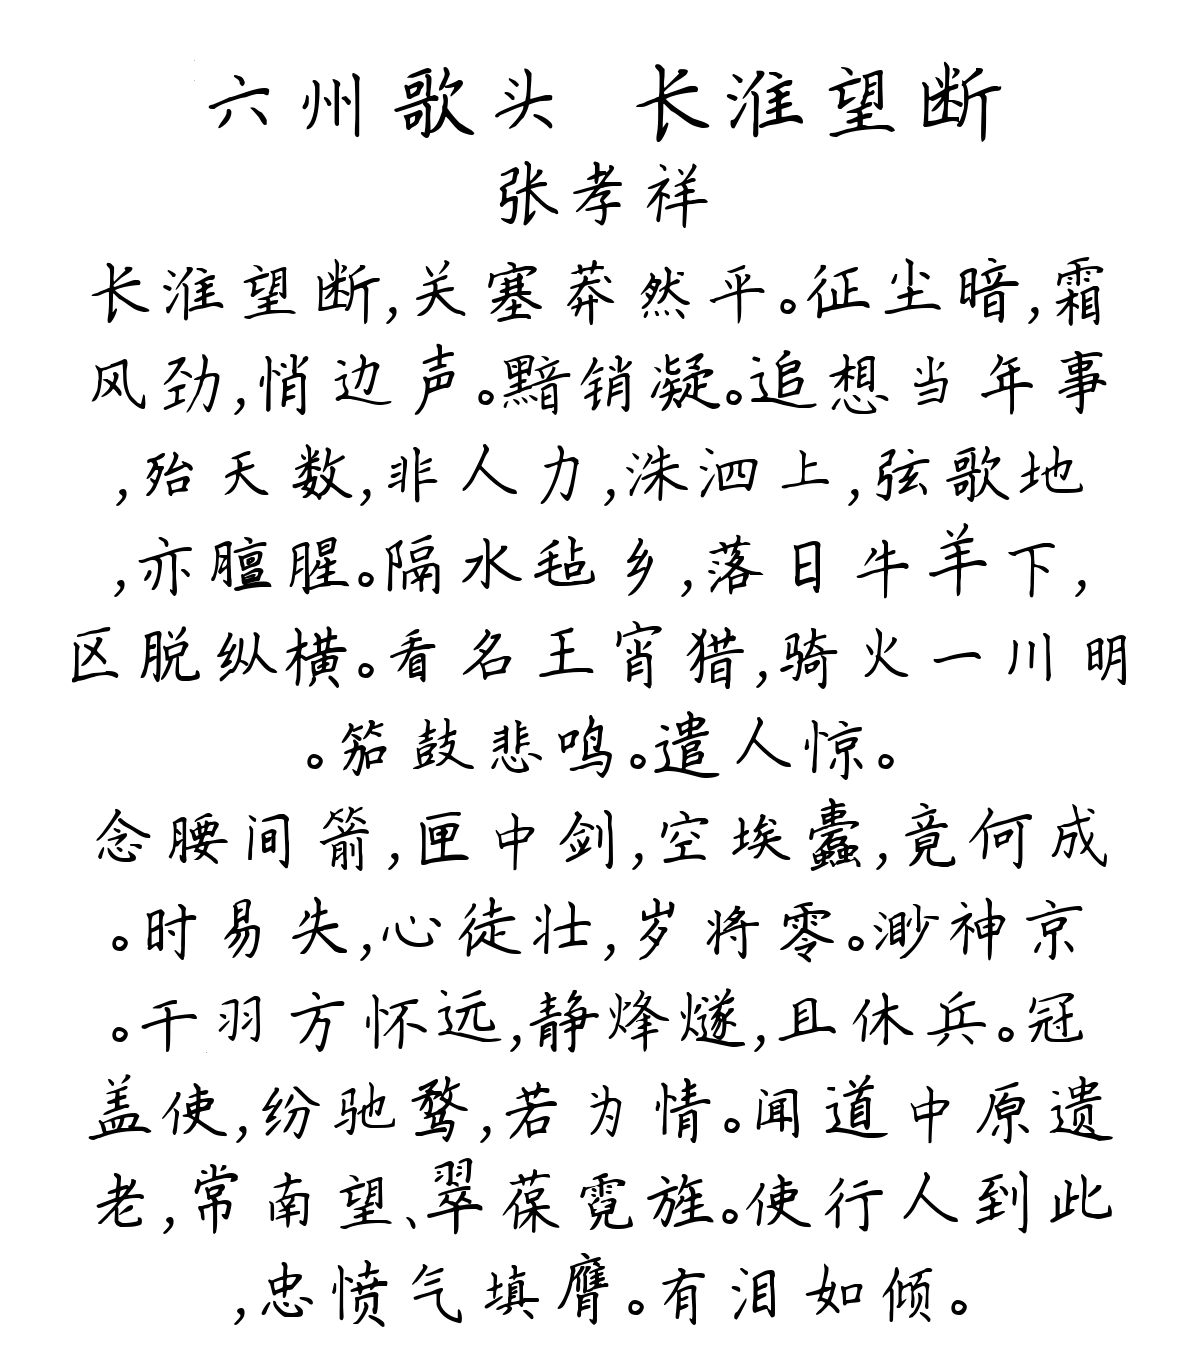 六州歌头 长淮望断
张孝祥
长淮望断,关塞莽然平。征尘暗,霜
风劲,悄边声。黯销凝。追想当年事
,殆天数,非人力,洙泗上,弦歌地
,亦膻腥。隔水毡乡,落日牛羊下,
区脱纵横。看名王宵猎,骑火一川明
。笳鼓悲鸣。遣人惊。
念腰间箭,匣中剑,空埃蠹,竟何成
。时易失,心徒壮,岁将零。渺神京
。干羽方怀远,静烽燧,且休兵。冠
盖使,纷驰骛,若为情。闻道中原遗
老,常南望、翠葆霓旌。使行人到此
,忠愤气填膺。有泪如倾。